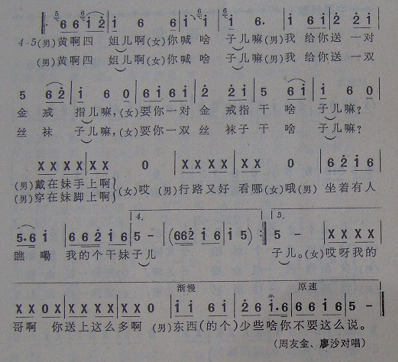 5 6 6 i 2 | i 6 6 | 6 i i | i 6. | i 6 i | 2 2 i |
4-5(男)黄啊四 姐儿啊(女)你喊 啥 子儿嘛(男)我 给你 送 一对
(男)黄啊四 姐儿啊(女)你喊 啥 子儿嘛(男)我 给你 送 一双
金 戒 指儿嘛,(女)要你一对 金 戒指 干 啥 子儿嘛?
丝 袜 子儿嘛,(女)要你一双 丝 袜子 干 啥 子儿嘛?
X X X X | X X 0 | X X X X | X X 0 | 6 2 i 6 |
(男)戴在妹手上啊 (女)哎 (男)行路又好 看哪(女)哦(男) 坐着有人
(男)穿在妹脚上啊
4. 5.
5·6 i | 6 6 2 i 6 | 5 - | (6 6 2 i 6 | i 5) | 5 - | X X X X |
瞧 嘞 我的个干妹 子儿 子儿。(女)哎呀我的
渐慢 原速
X X 0 X | X X X X | X X 0 | i i 6 i | 2 i·6 | 6 6 i 6 | 5 - |
哥啊 你 送上这么 多啊 (男)东西(的个) 少些啥 你不要这么 说。
(周友金、廖沙对唱)